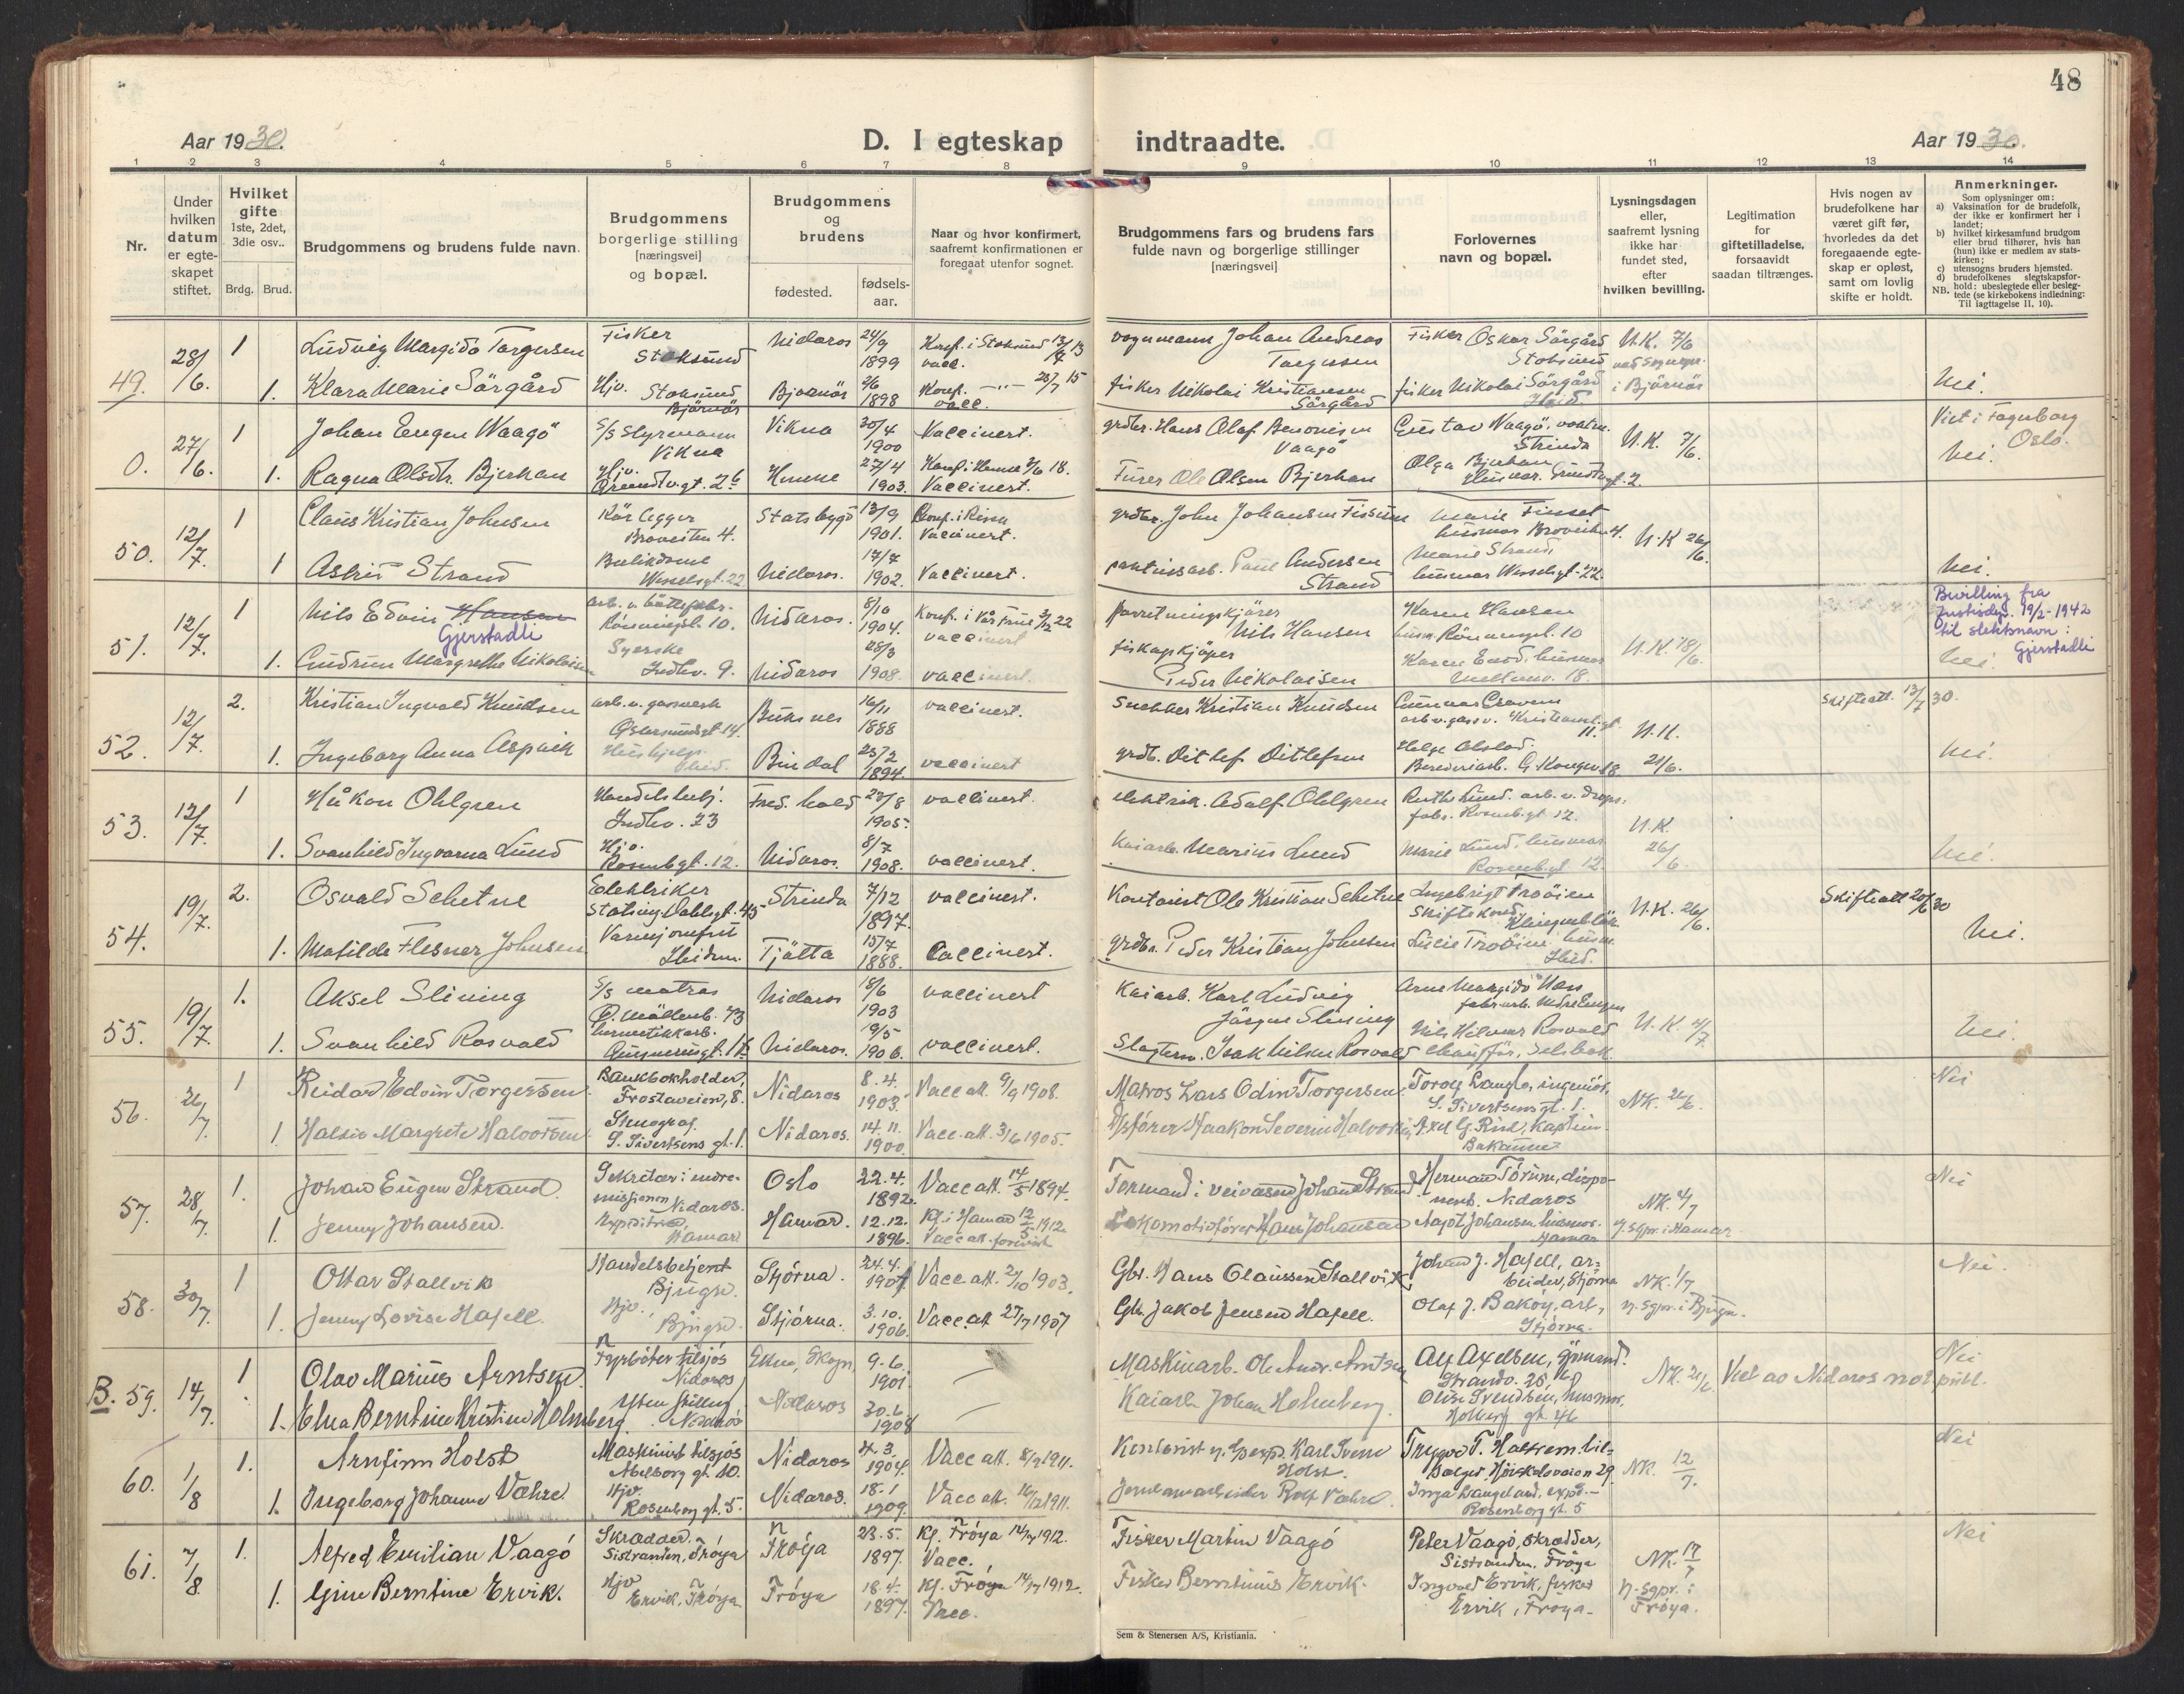 48
Aar 1930.
D. I egteskap indtraadte.
Aar 1930.
1 2 3 4 5 6 7 8 9 10 11 12 13 14
Nr.
Under hvilken datum er egte-skapet stiftet.
Hvilket gifte 1ste, 2det, 3die osv..
Brdg. Brud.
Brudgommens og brudens fulde navn.
Brudgommens borgerlige stilling [næringsvei] og bopæl.
Brudgommens og brudens
fødested.
fødsels-aar.
Naar og hvor konfirmert, saafremt konfirmationen er foregaat utenfor sognet.
Brudgommens fars og brudens fars fulde navn og borgerlige stillinger [næringsvei]
Forlovernes navn og bopæl.
Lysningsdagen eller, saafremt lysning ikke har fundet sted, efter hvilken bevilling.
Legitimation for giftetilladelse, forsaavidt saadan tiltrænges.
Hvis nogen av brudefolkene har været gift før, hvorledes da det foregaaende egte-skap er opløst, samt om lovlig skifte er holdt.
Anmerkninger.
Som oplysninger om:
a) Vaksination for de brudefolk, der ikke er konfirmert her i landet;
b) hvilket kirkesamfund brudgom eller brud tilhører, hvis han (hun) ikke er medlem av stats-kirken;
c) utensogns bruders hjemsted.
d) brudefolkenes slegtskapsfor-hold: ubeslegtede eller besleg-tede (se kirkebokens indledning:
NB. Til iagttagelse II, 10).
49. 28/6. 1 Ludvig Margido Torgersen Fisker Stoksund Nidaros 24/9 1899 Konf. i Stoksund 13/7 13 vacc. vognmann Johan Andreas Torgersen Fisker Oskar Sörgård Stoksund N.K. 7/6
1. Klara Marie Sörgård Hjv. Stoksund Bjørnör Bjørnör 2/6 1898 Konf. —"— 15 vacc. fisker Nikolai Kristiansen Sörgård fisker Nikolai Sörgård ved sognepr. i Bjørnör Nei.
0. 27/6. 1 Johan Eugen Waagö S/S Styrmann Vikna Vikna 30/4 1900 Vaccinert. grdbr. Hans Olaf Benonisen Vaagö Gustav Waagö, Strinda N.K. 7/6. Viet i Fagerborg Oslo.
1. Ragna Olsdtr. Bjerkan Hjv. Grundtv.gt. 2 b Hemne 27/4 1903. Konf. i Hemne 3/6 18. Vaccinert. Furer Ole Olsen Bjerkan Olga Bjerkan Husmor. Grundtvgt. 2. Nei.
50. 12/7. 1 Claus Kristian Johnsen Broveiten 4. Stadsbygd 13/9 1901. Konf. i Rissa Vaccinert. grdbr. John Johansen Fissum Marie Finset husmor Broveiten 4. N.K 26/6.
1 Astrid Strand Butikdame Wesselsgt. 22 Nidaros. 17/7 1902. Vaccinert. Paul Andersen Strand Marie Strand, husmor Wesselsgt-22. Nei.
51. 12/7. 1 Nils Edvin Hansen Gjerstadli Rönningsl. 10. Nidaros. 8/10 1904. Konf. i Vår Frue 3/12 22 vaccinert forretningskjörer Nils Hansen Karen Hansen husm. Rönningsl. 10 N.K. 18/6. Bevilling fra Justisdep. 19/2-1942 til slektsnavn: Gjerstadli
1. Gudrun Margrethe Nikolaisen Syerske Indhv. 9. Nidaros 28/3 1908. vaccinert. fiskeopkjöper Peder Nikolaisen Karen husmor Mellomv. 18. Nei.
52. 12/7. 2. Kristian Ingvald Knudsen arb. v. gassverk Östersundsgt 14. Buksnes 16/11 1888 vaccinert. Snekker Kristian Knudsen Gunnar Craven arb v. gassv. Kristiansfgt 11. N.K. Skifteatt. 13/7 30.
1. Ingeborg Anna Aspvik Hushjelp. ibid. Bindal 23/2 1894. vaccinert grdb. Ditlef Ditlefsen Helge Alstad. 21/6. Nei.
53. 12/7. 1 Håkon Ohlgren Handelsbetj. Indhv. 23 Fred.hald 23/8 1905. vaccinert. elektrik. Adolf Ohlgren Ruth Lund. arb. v. Drops. fabr. Rosenb.gt 12. N.K.
1. Svanhild Ingvarna Lund Hjv. Rosenbgt. 12. Nidaros. 8/7 1908. vaccinert. Kaiarb. Marius Lund Marie Lund, husmor Rosenb.gt 12. 26/6. Nei.
54. 19/7. 2. Osvald Schetne Elektriker Statsing. Dahlsgt. 45 Strinda 7/12 1897. vaccinert. Kontorist Ole Kristian Schetne Ingebrigt Troöien N.K. 26/6. Skifteatt 20/6 30
1. Matilde Flesner Johnsen Varmjomfru Tjötta 15/7 1888. Vaccinert. grdbr. Peder Kristian Johnsen Lucie Troöien husm. Ibid. Nei.
55. 19/7. 1. Aksel Slining S/S matros Ö. Möllenb. 73 Nidaros 18/6 1903 vaccinert Kaiarb. Karl Ludvig Jörgen Slining Arne Margido Hans fabr.arb. N.K. 4/7
1. Svanhild Rosvald hermetikkarb. Gunnerusgt. 1 b Nidaros. 19/5 1906. vaccinert. Slagterm. Isak Nilsen Rosvald Nils Hilmar Rosvald Chauffør, Selsbak. Nei.
56. 26/7. 1 Reidar Edvin Torgersen. Bankbokholder, Frostaveien, 8. Nidaros 8.4. 1903. Vacc att 9/9 1908. Matros Lars Odin Torgersen. Toroy Langlo, ingeniör, S. Sivertsens gt. 1. NK. 26/6. Nei
1 Haldis Margrete Halvorsen. Stenograf. S. Sivertsens gt. 1. Nidaros. 14.11. 1900. Vacc. att. 3/6 1905. Haakon Severin Halvorsen Axel G. Rise, kaptein. Bakaune
57. 28/7. 1. Johan Eugen Strand. Sekretær i indre-missjonen Nidaros. Oslo 22.4. 1892. Vacc att. 14/5 1894. Formand i veivæsnet Johan Strand Herman Törum, dispo-nent. Nidaros NK. 4/7 Nei
1. Jenny Johansen. Hamar Hamar. 12.12. 1896. Kf. i Hamar 12/5 1912 Vacc att. forevist Lokomotivförer Hans Johansen Aagot Johansen husmor. Hamar v. sgpr. i Hamar
58. 30/7. 1 Ottar Stallvik Handelsbetjent Bjugn. Stjörna. 24.4. 1901 Vacc att. 2/10 1903. Gbr. Hans Olaussen Stallvik Johan J. Hafell, ar-beider, Stjörna NK. 1/7 Nei.
1. Jenny Lovise Hafell. Hjv. Bjugn. Stjörna. 3.10. 1906. Vacc. att 27/7 1907 Gbr. Jakob Jensen Hafell. Olaf J. Baköy, arb., Stjörna. v. Sgpr. i Bjugn.
B. 59. 14/7. 1 Olav Marius Arntsen Fyrböter tilsjös Nidaros Ekne, Skogn 9.6. 1901 — Maskinarb. Ole Andr. Arntsen Alf Axelsen, formand. Strandv. 26. NK. 21/6 Viet av Nidaros not. publ. Nei
1. Elna Berntine Kristine Holmberg Uten stilling. Nidaros Nidaros 30.6. 1908 — Kaiarb. Johan Holmberg. Olise Svendsen, husmor. Holberg gt.
60. 1/8 1. Arnfinn Holst Maskinist tilsjös Abelsborg gt. 10. Nidaros 4.3. 1904. Vacc att. 8/2 1911. Kontorist Karl Ivene Holst. Trygve T. Haltrem, Höiskoleveien 29. NK. 12/7. Nei
1. Ingeborg Johanne Væhre Hjv. Rosenborg gt. 5. Nidaros. 18.1 1909. Vacc att. 16/12 1911. Jernbanearbeider Rolf Væhre. Inga Langeland, exped.— Rosenborg gt. 5
61. 7/8. 1. Alfred Emilian Vaagö Skrædder. Sistranden, Fröya Fröya 23.5. 1897. Kf. Fröya 14/7 1912. Vacc. Fisker Martin Vaagö Peter Vaagö, skrædder, Sistranden, Fröya NK. 17/7 Nei
1. Gine Berntine Ervik. Hjv Ervik, Fröya Fröya 18.4. 1897. Kf. Fröya 14/7 1912. Vacc. Fisker Berntinus Ervik. Ingvald Ervik, fisker Ervik, Fröya. v. sgpr. i Fröya.
Sem & Stenersen A/S, Kristiania.